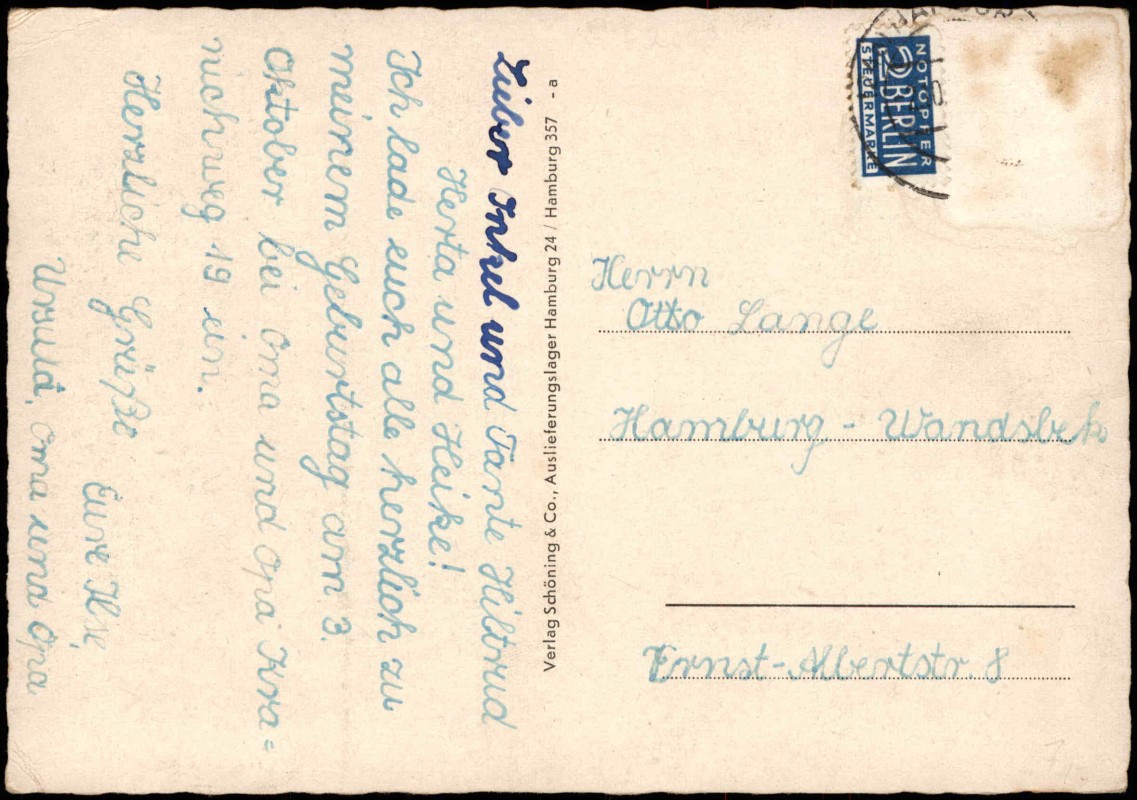 Lieber Onkel und Tante Hiltrud
Herta und Heike!
Ich lade euch alle herzlich zu
meinem Geburtstag am 3.
Oktober bei Oma und Opa Kra=
nichweg 19 ein.
Herzliche Grüße
Eure Ilse
Ursula, Oma und Opa
Verlag Schöning & Co., Auslieferungslager Hamburg 24 / Hamburg 357 - a
NOTOPFER
2 BERLIN
STEUERMARKE
Herrn
Otto Lange
Hamburg - Wandsbek
Ernst-Albertstr. 8